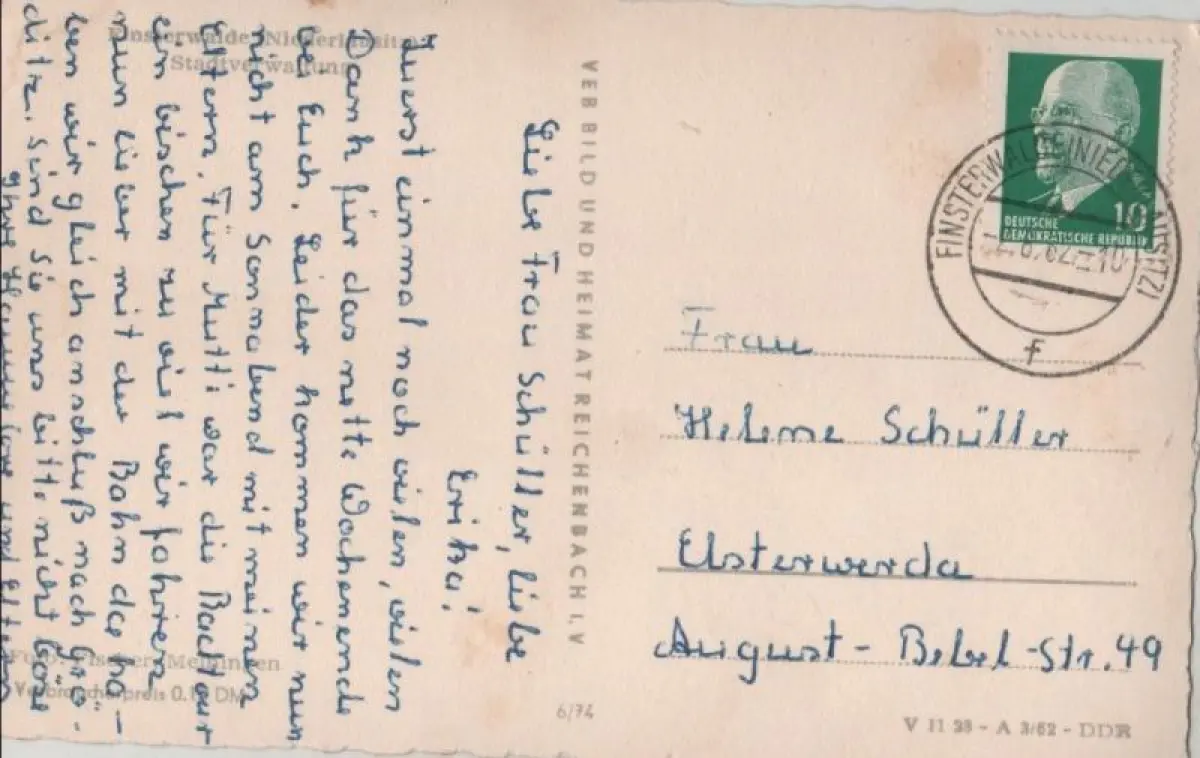 Finsterwalde (Niederlausitz)
Stadtverwaltung
Liebe Frau Schüller, liebe
Erika!
Zuerst einmal noch vielen, vielen
Dank für das nette Wochenende
bei Euch. Leider kommen wir nun
nicht am Sonnabend mit meinen
Eltern. Für Mutti war die Radtour
ein bischen zu viel wir fahren
nun lieber mit der Bahn da ha-
ben wir gleich anschluß nach Grö-
ditz. Sind Sie uns bitte nicht böse
Ihre Hannelore und Eltern
Foto: Fischer, Meiningen
Verbraucherpreis DM
VEB BILD UND HEIMAT REICHENBACH I. V
6/74
DEUTSCHE
DEMOKRATISCHE REPUBLIK
10
FINSTERWALDE (NIEDERLAUSITZ)
f
Frau
Helene Schüller
Elsterwerda
August-Bebel-Str. 49
V 11 28 - A 3/62 - DDR